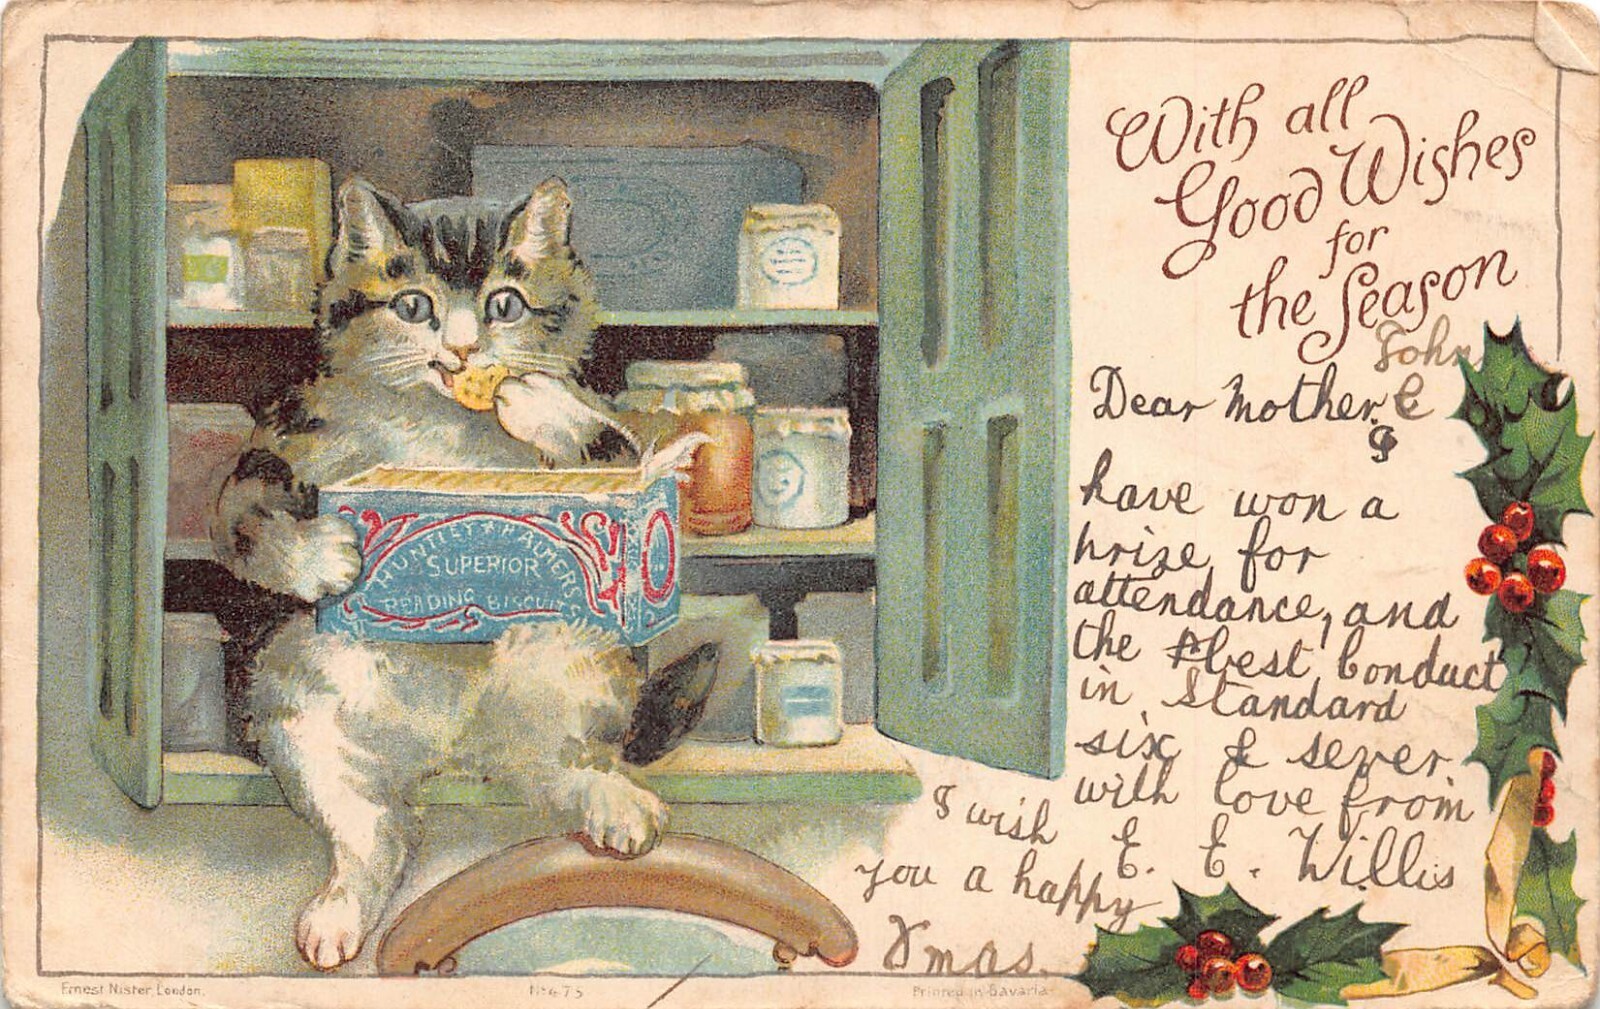 With all
Good Wishes
for
the Season
John
Dear Mother. E
I
have won a
prize for
attendance, and
the best Conduct
in Standard
six & seven.
with love from
E. E. Willis
I wish
you a happy
Xmas.
HUNTLEY & HALMERS
SUPERIOR
READING BISCUITS
Ernest Nister, London.
No 475
Printed in Bavaria